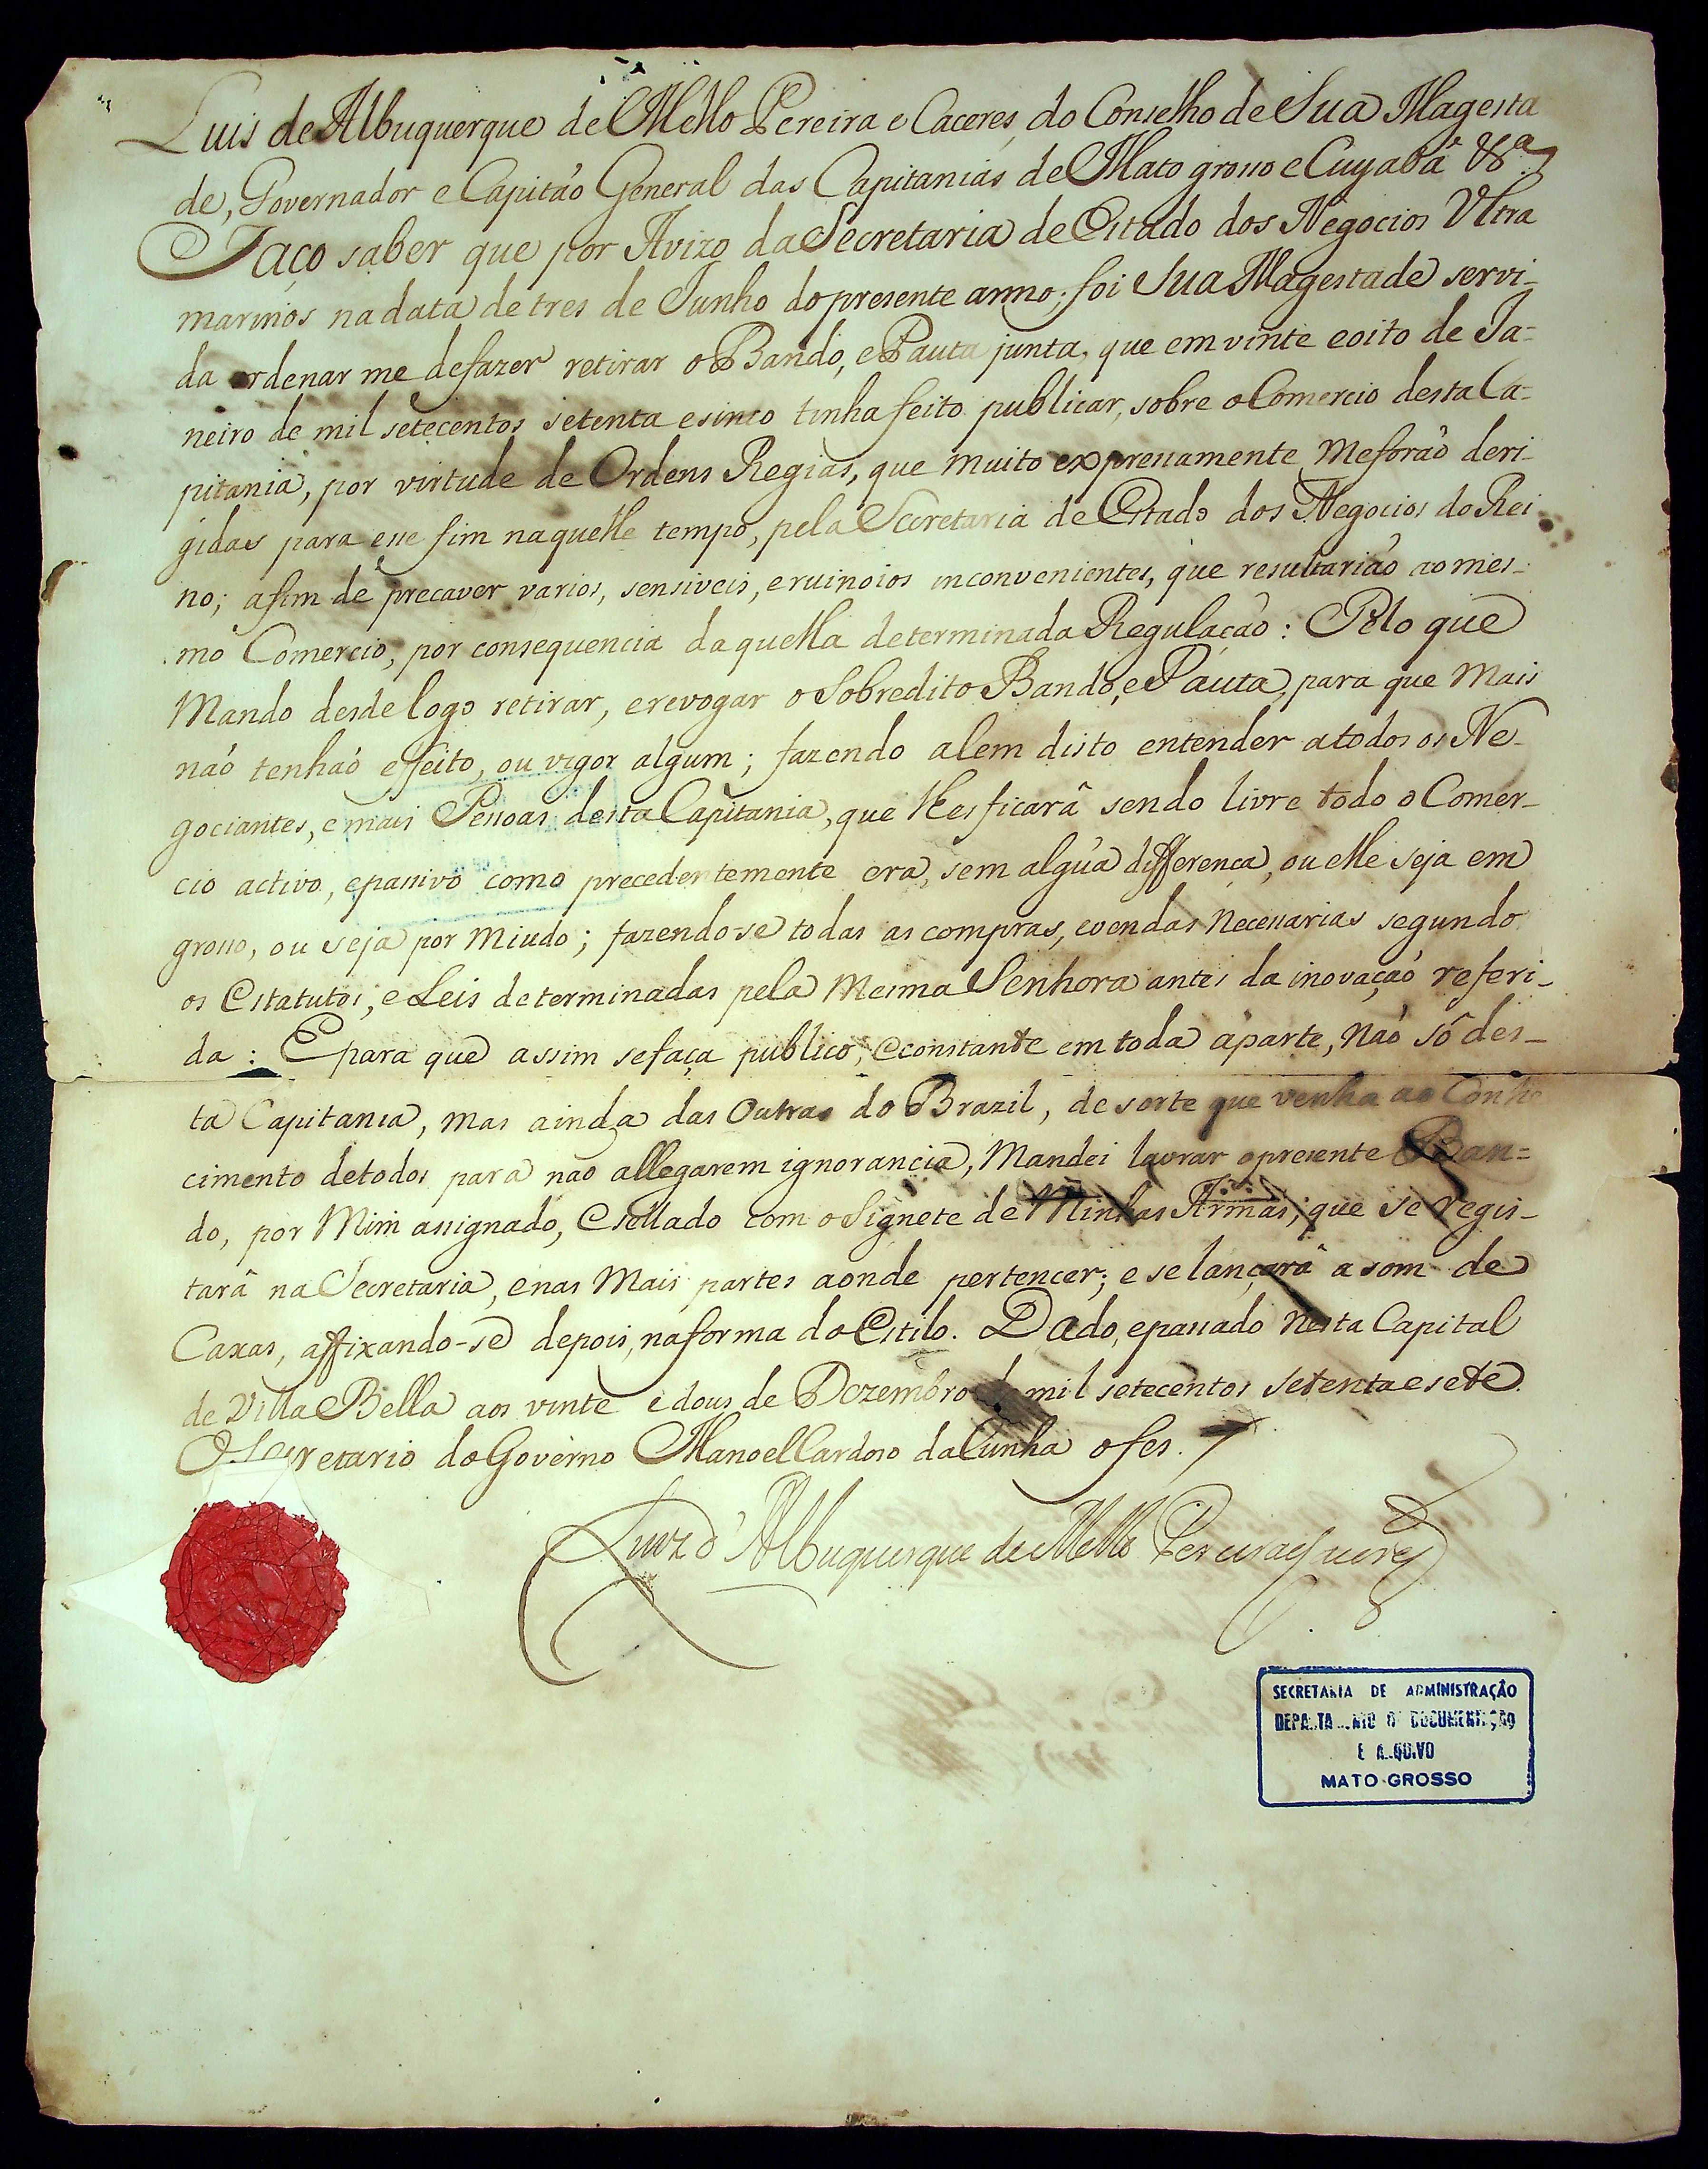 Luis de Albuquerque de Mello Pereira e Caceres, do Conselho de Sua Magesta
de, Governador e Capitaõ General das Capitanias de Mato grosso e Cuyabâ &ª
Faço saber que por Avizo da Secretaria de Estado dos Negocios Vltra
marinos na data de tres de Junho do presente anno; foi Sua Magestade servi-
da ordenar me de fazer retirar o Bando, e Pauta junta, que em vinte e oito de Ja=
neiro de mil setecentos setenta e sinco tinha feito publicar, sobre o Comercio desta Ca=
pitania, por virtude de Ordens Regias, que muito expressamente me forâo deri-
gidas para esse fim naquelle tempo, pela Secretaria de Estado dos Negocios do Rei
no; a fim de precaver varios, sensiveis, e ruinoios inconvenientes, que resultariaõ ao mes-
mo Comercio, por consequencia daquella determinada Regulaçaõ: Pelo que
Mando desde logo retirar, e revogar o Sobredito Bando, e Pauta, para que mais
naõ tenhaõ effeito, ou vigor algum; fazendo alem disto entender a todos os Ne-
gociantes, e mais Pessoas desta Capitania, que lhes ficarâ sendo livre todo o Comer-
cio activo, e passivo como precedentemente era, sem algũa differença, ou elle seja em
grosso, ou seja por miudo; fazendo-se todas as compras, e vendas necessarias segundo
os Estatutos, e Leis determinadas pela mesma Senhora antes da inovaçaõ referi-
da: E para que assim se faça publico, e constante em toda a parte, naõ sô des-
ta Capitania, mas ainda das outras do Brazil, de sorte que venha ao Conhe
cimento de todos para naõ allegarem ignorancia, Mandei lavrar o presente Ban=
do, por Mim assignado, e sellado com o Signete de Minhas Armas; que se regis-
tarâ na Secretaria, e nas mais partes aonde pertencer; e se lançarâ a som de
Caxas, affixando-se depois, na forma do Estilo. Dado, e passado nesta Capital
de Villa Bella aos vinte e dous de Dezembro de mil setecentos setenta e sete.
O Secretario do Governo Manoel Cardoso da Cunha o fes.
Luiz d'Albuquerque de Mello Pereira e Caceres
SECRETARIA DE ADMINISTRAÇÃO
DEPARTAMENTO DE DOCUMENTAÇÃO
E ARQUIVO
MATO GROSSO